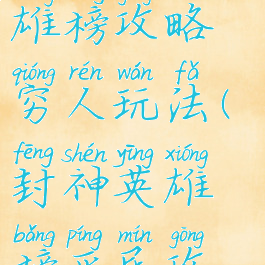 雄榜攻略
qióng rén wán fǎ
穷人玩法(
fēng shén yīng xióng
封神英雄
bǎng píng mín gōng
榜平民攻